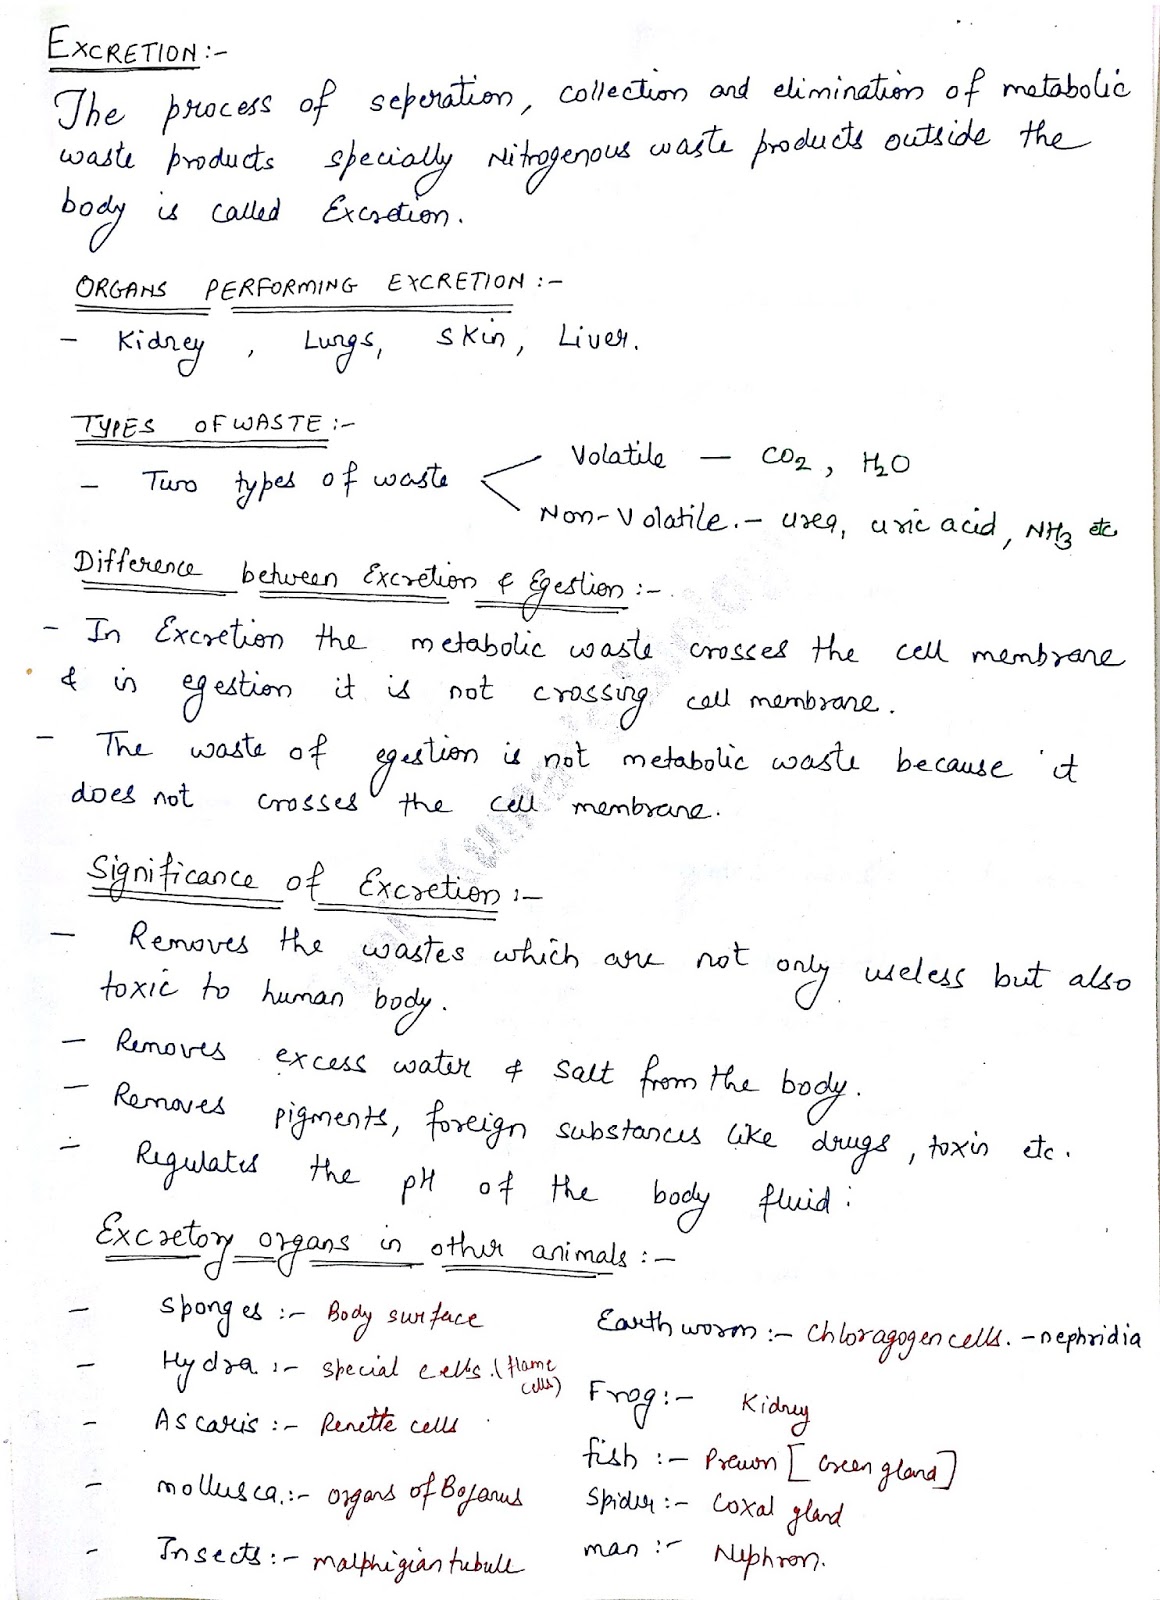 EXCRETION :-
The process of seperation, collection and elimination of metabolic
waste products specially Nitrogenous waste products outside the
body is called Excretion.
ORGANS PERFORMING EXCRETION :-
- Kidney, Lungs, Skin, Liver.
TYPES OF WASTE :-
- Two types of waste
Volatile — CO2, H2O
Non-Volatile. - urea, uric acid, NH3 etc
Difference between Excretion & Egestion :-.
- In Excretion the metabolic waste crosses the cell membrane
& in egestion it is not crossing cell membrane.
- The waste of egestion is not metabolic waste because it
does not crosses the cell membrane.
Significance of Excretion :-
- Removes the wastes which are not only useless but also
toxic to human body.
- Removes excess water & salt from the body.
- Removes pigments, foreign substances like drugs, toxin etc.
- Regulates the pH of the body fluid.
Excretory organs in other animals :-
- Sponges :- Body surface
- Hydra :- special cells. (flame cells)
- Ascaris :- Renette cells
- mollusca :- organs of Bojanus
- Insects :- malphigian tubule
Earthworm :- Chloragogen cells. - nephridia
Frog :- Kidney
fish :- Prewon [Green gland]
Spider :- Coxal gland
man :- Nephron.